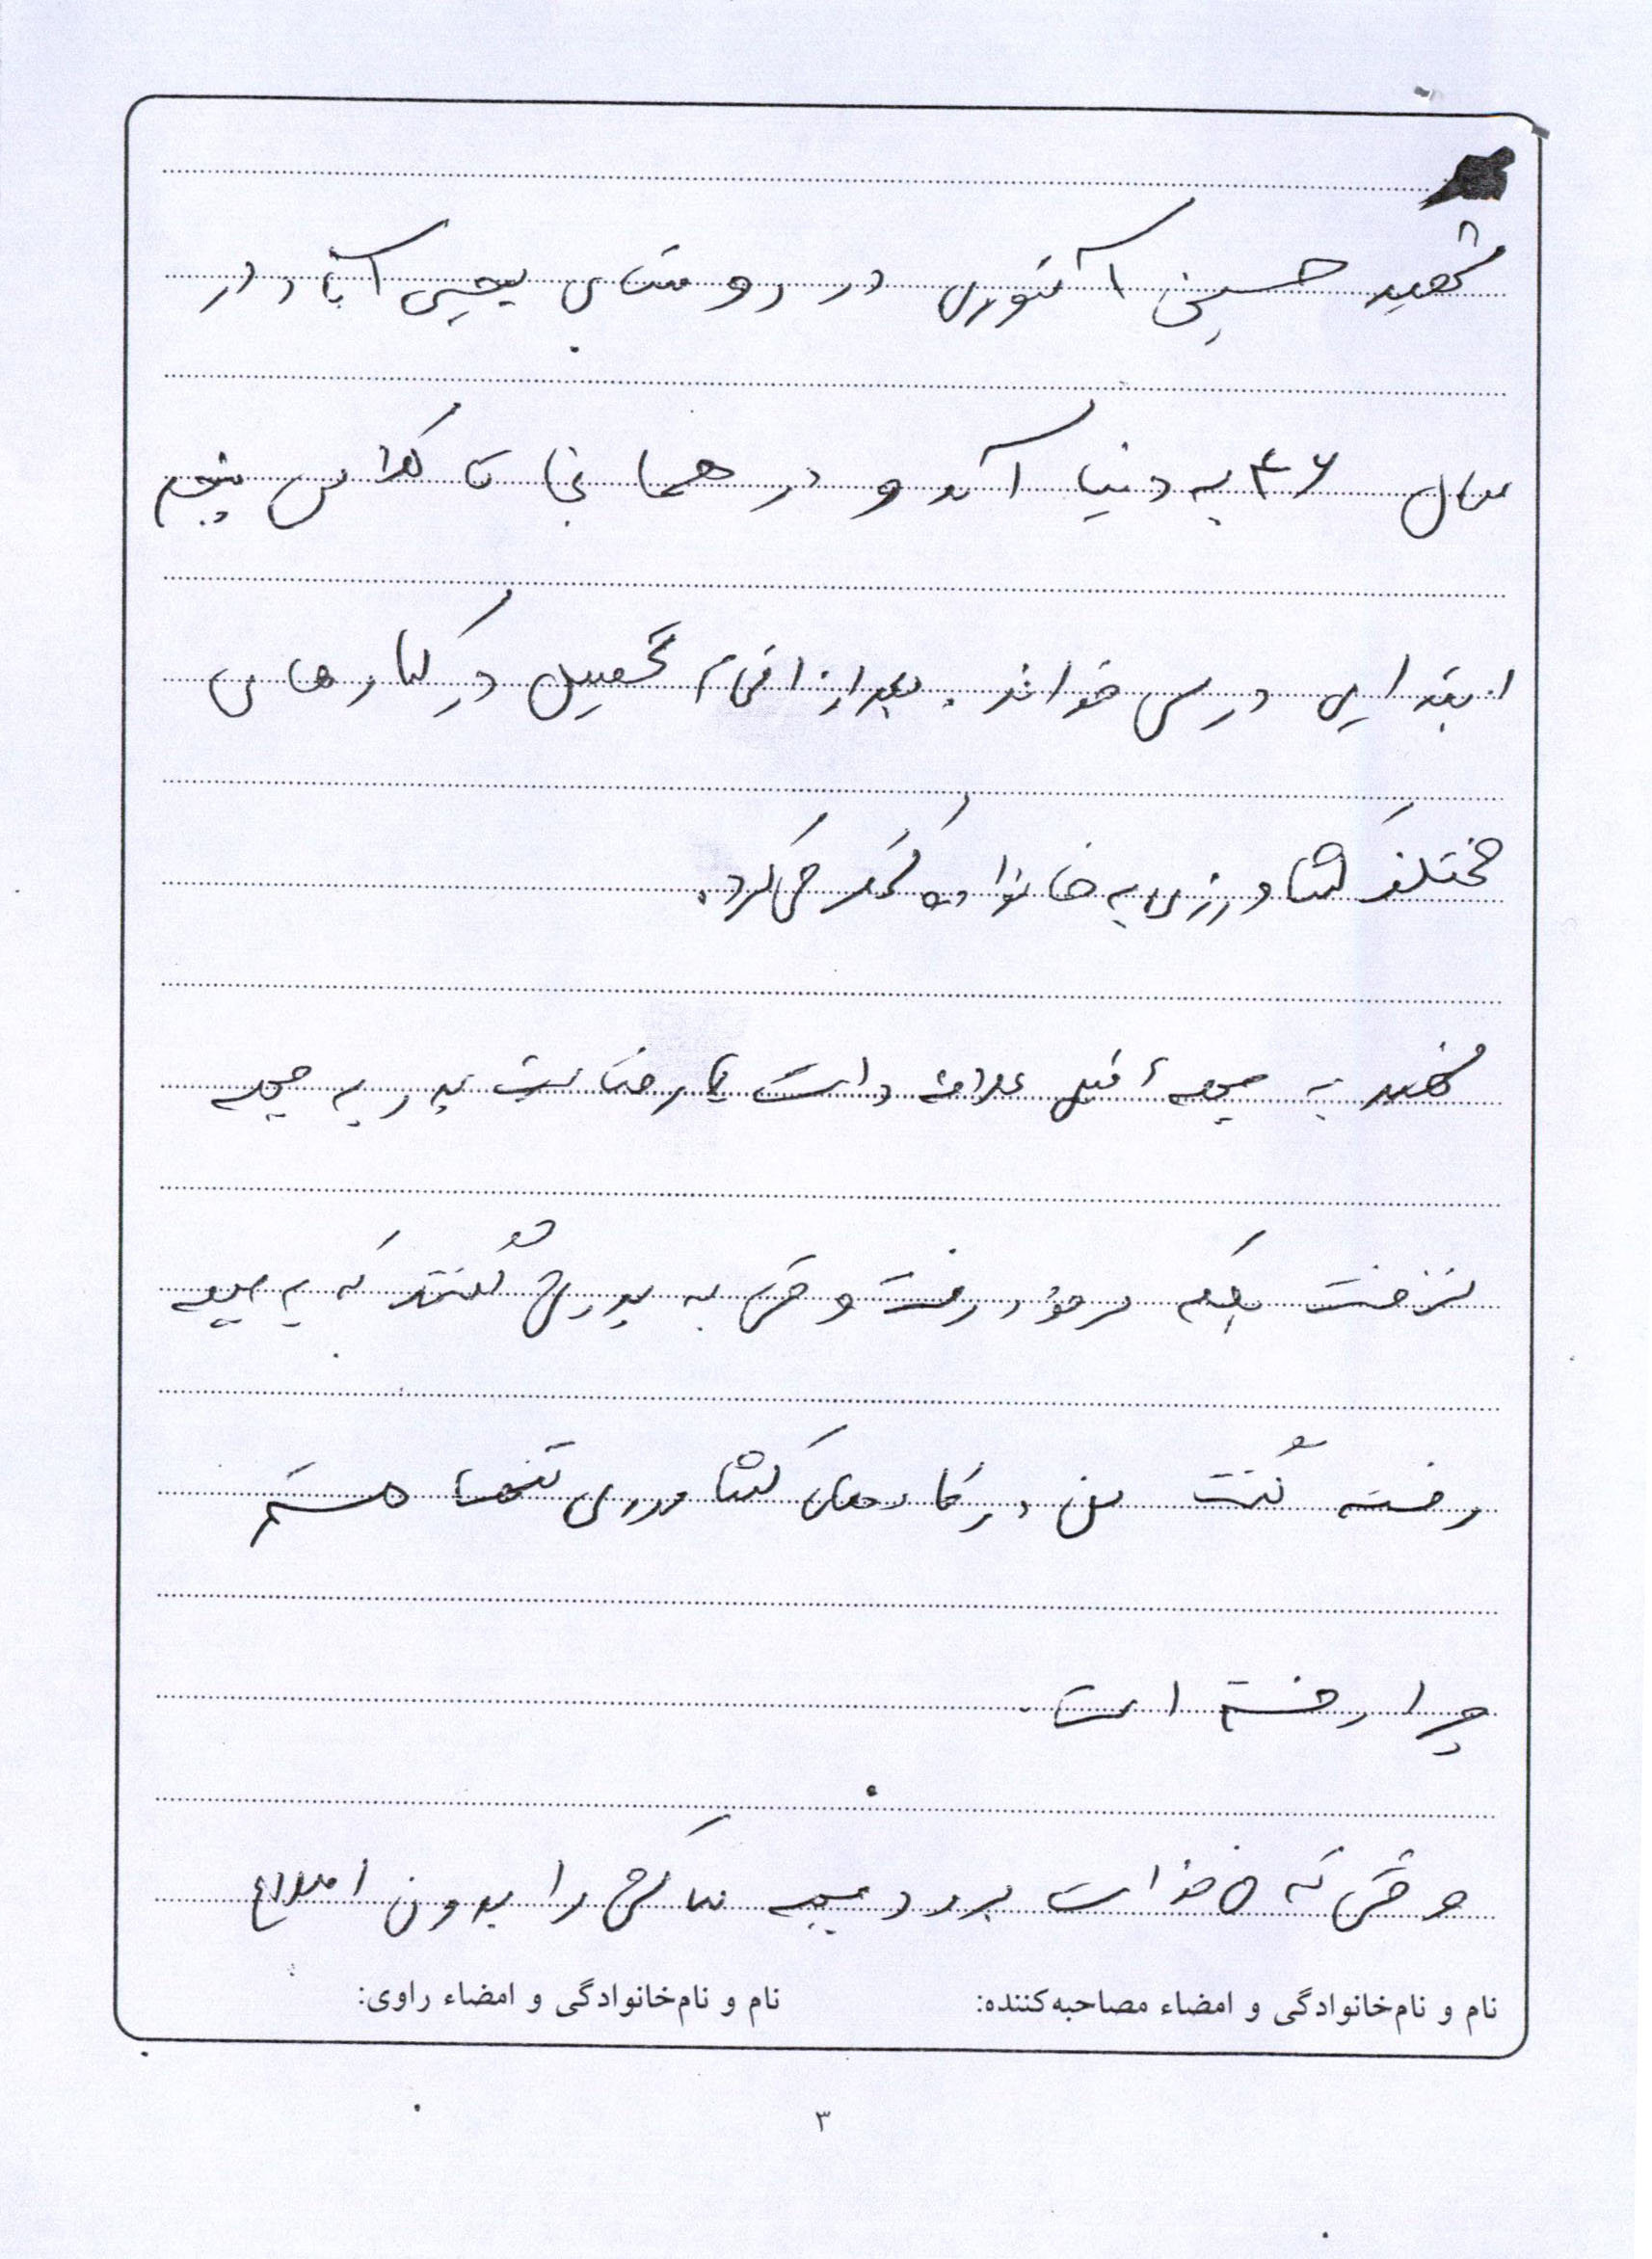 شهید حسین آشوری در روستای یحیی آباد در
سال ۴۶ به دنیا آمد و در همانجا تا کلاس پنجم
ابتدایی درس خواند. بعد از اتمام تحصیل در کارهای
مختلف کشاورزی به خانواده کمک می کرد.
شهید به جبهه خیلی علاقه داشت با رضایت پدر به جبهه
نرفت بلکه سرخود رفت وقتی به پدرش گفتند که به جبهه
رفته گفت من در کارهای کشاورزی تنها هستم
چرا رفته است.
وقتی که می خواست برود جبهه ساکش را بدون اطلاع
نام و نام‌خانوادگی و امضاء مصاحبه‌کننده: نام و نام‌خانوادگی و امضاء راوی:
۳